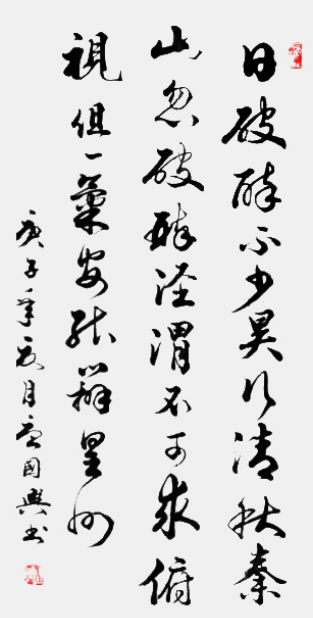 日破碎不少昊行清秋秦
山忽破碎泾渭不可求俯
視但一氣安能辨皇州
庚子年夏月国興书